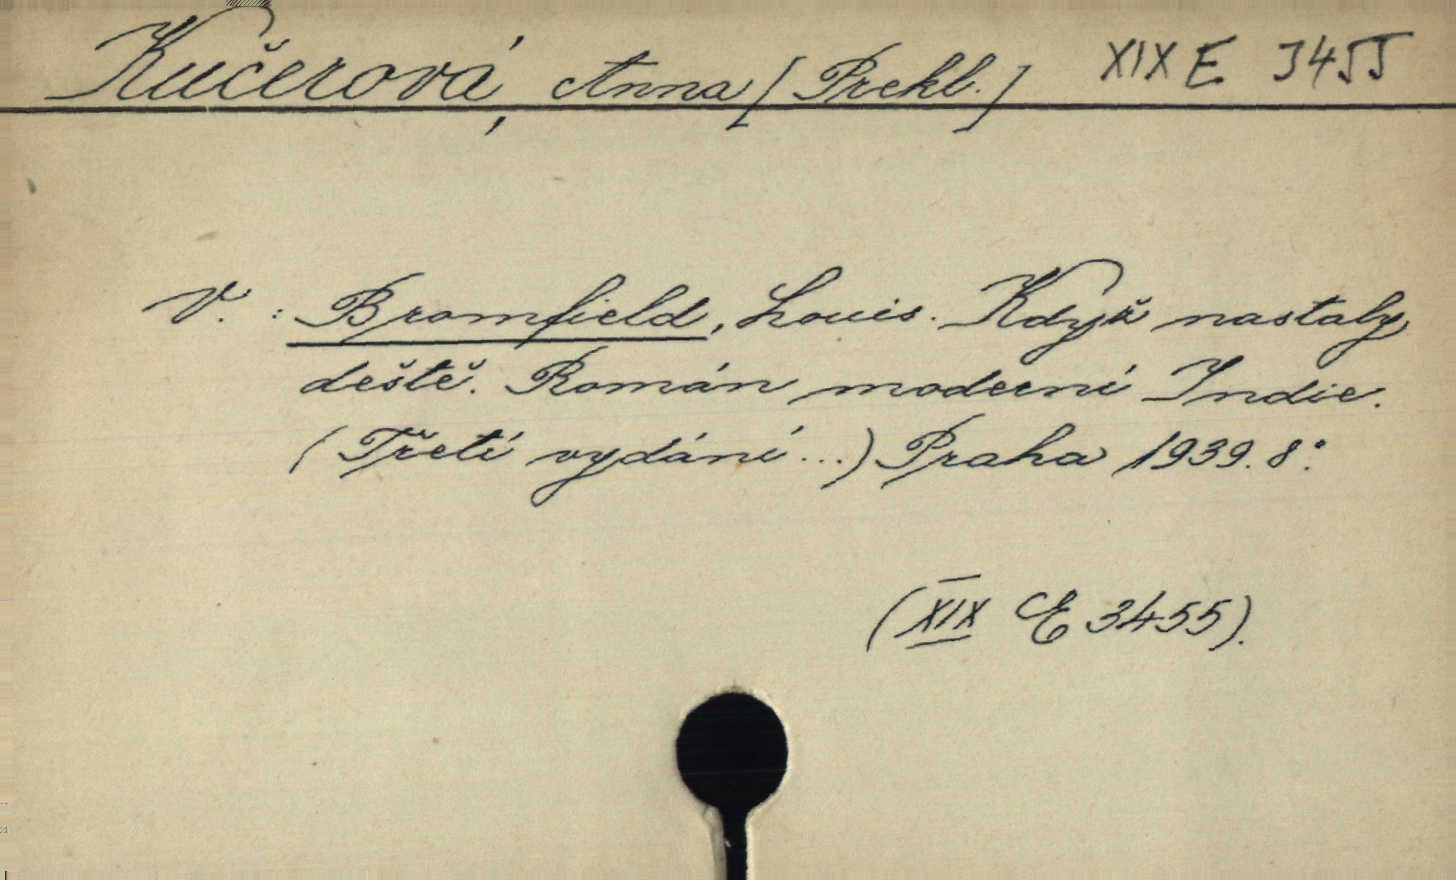 Kučerová, Anna [Prekl.] XIX E 3455
V. : Bromfield, Louis. Když nastaly
deště. Román moderní Indie.
(Třetí vydání...) Praha 1939. 8°.
(XIX E 3455).